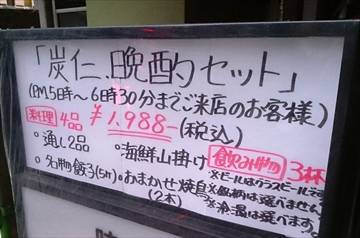 「炭仁.晩酌セット」
(PM.5時〜6時30分までご来店のお客様)
料理 4品 ¥1.988-(税込)
・通し2品 ・海鮮山掛け 飲み物 3杯
・名物餃子(5ヶ) ・おまかせ焼鳥(2本)
※ビールはグラスビール
※銘柄は選べません。
※米、温は選べます。